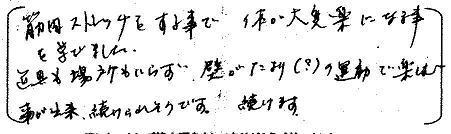 筋肉ストレッチをする事で 体が大変楽になる事
を学びました。
道具も場所もいらず 壁がたより(?)の運動で楽しく
事が出来、続けられそうです。 続けます。